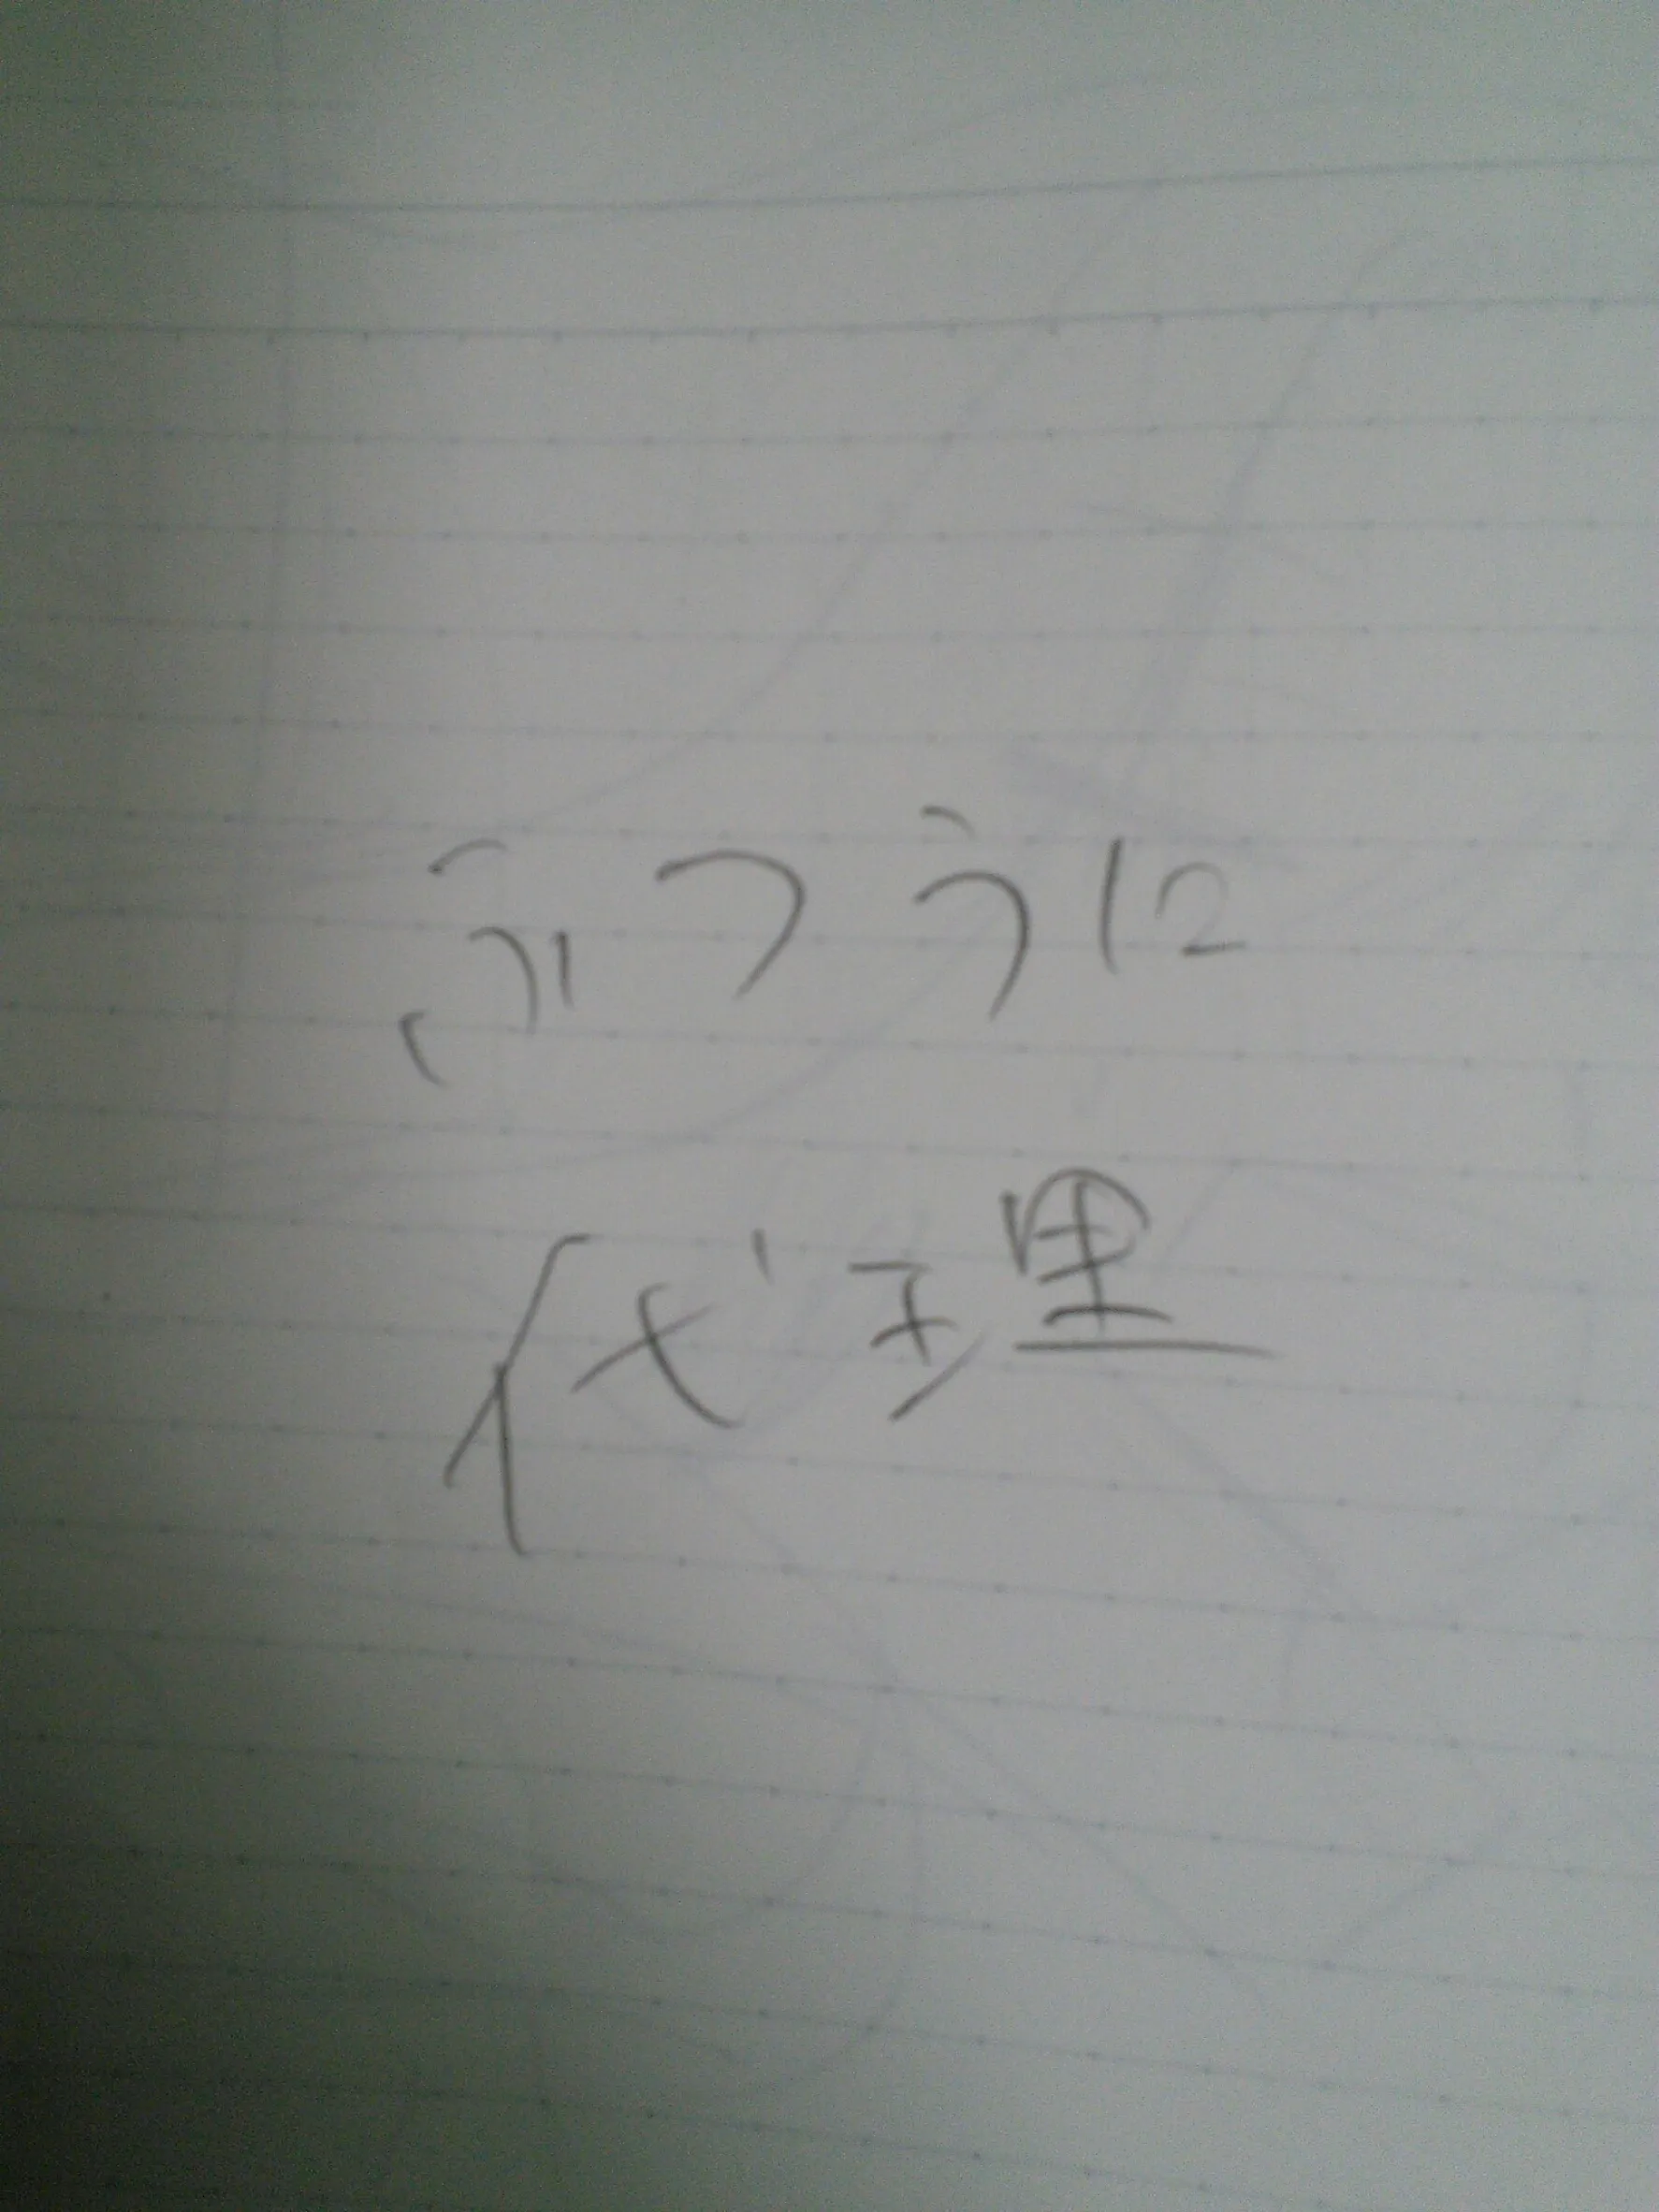 ふつうに
代理